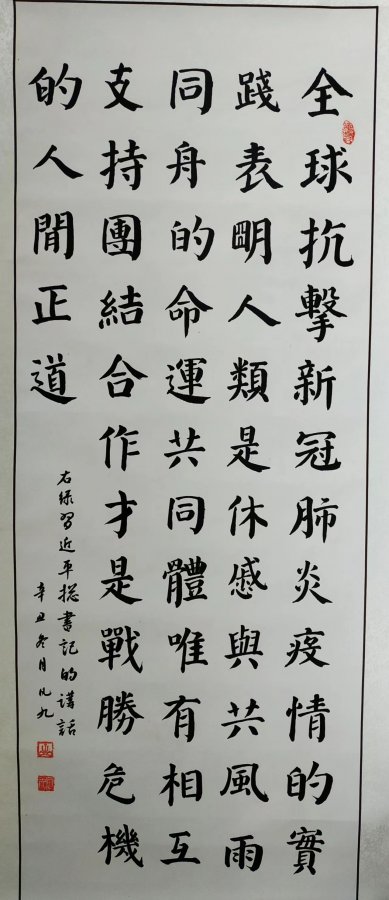 全球抗擊新冠肺炎疫情的實
踐表明人類是休慼與共風雨
同舟的命運共同體唯有相互
支持團結合作才是戰勝危機
的人間正道
右錄習近平總書記的講話
辛丑冬月凡九